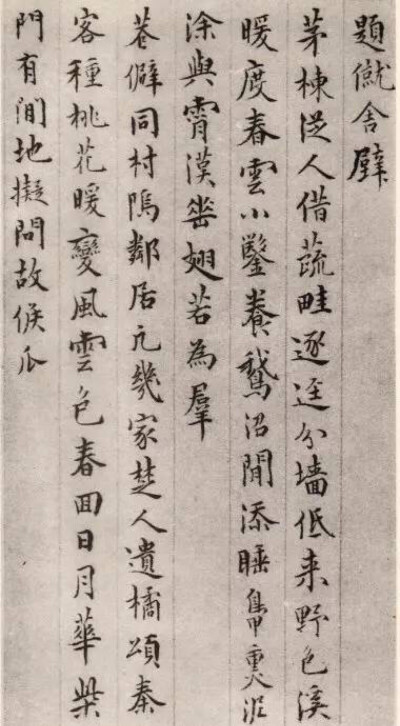 題僦舍壁
茅棟從人借蔬畦逐逕分墻低来野色溪
暖度春雲小鑿養鵝沼閒添睡鴨熏泥
涂與霄漢垂翅若為羣
巷僻同村隝鄰居凡幾家楚人遺橘頌秦
客種桃花暖變風雲色春回日月華柴
門有閒地擬問故侯瓜